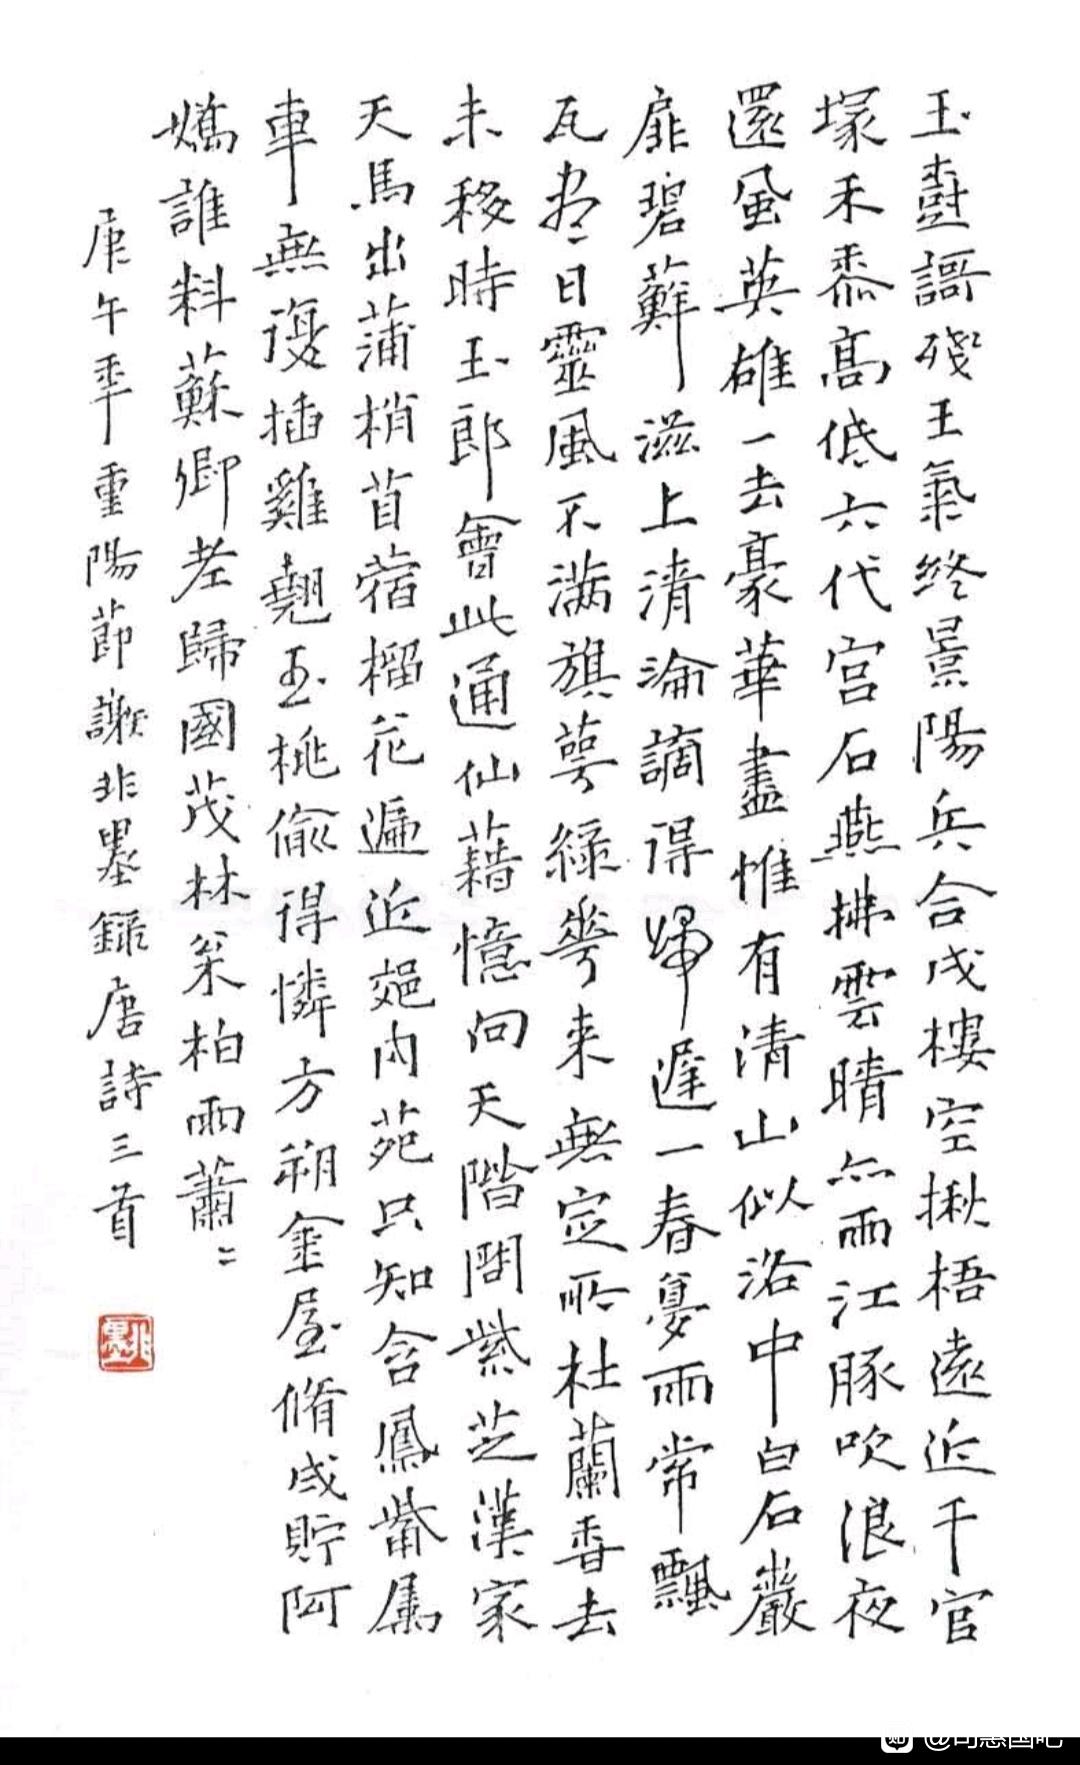 玉樹謌殘王氣終景陽兵合戍樓空楸梧遠近千官
塚禾黍高低六代宮石燕拂雲晴亦雨江豚吹浪夜
還風英雄一去豪華盡惟有清山似洛中白石巖
扉碧蘚滋上清淪謫得歸遲一春夢雨常飄
瓦盡日靈風不滿旗萼綠華來無定所杜蘭香去
未移時玉郎會此通仙藉憶向天階問紫芝漢家
天馬出蒲梢苜蓿榴花遍近郊內苑只知含鳳觜屬
車無復插雞翹玉桃偷得憐方朔金屋脩成貯阿
嬌誰料蘇卿老歸國茂林松柏雨蕭〻
庚午年重陽節謝非墨錄唐詩三首
非墨
知 @司惠国吧